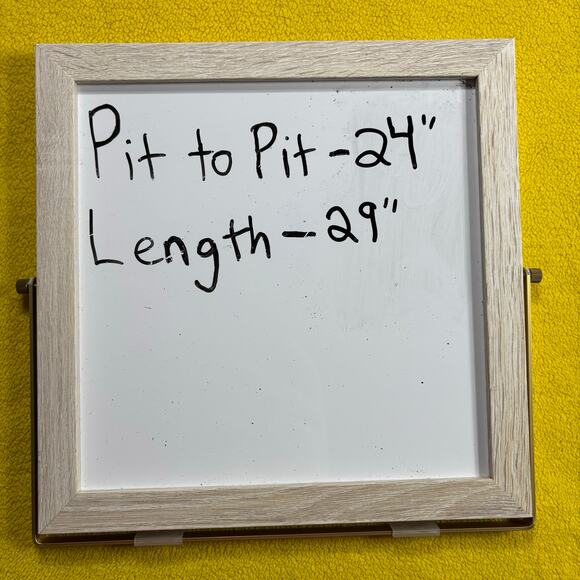 Pit to Pit - 24"
Length - 29"